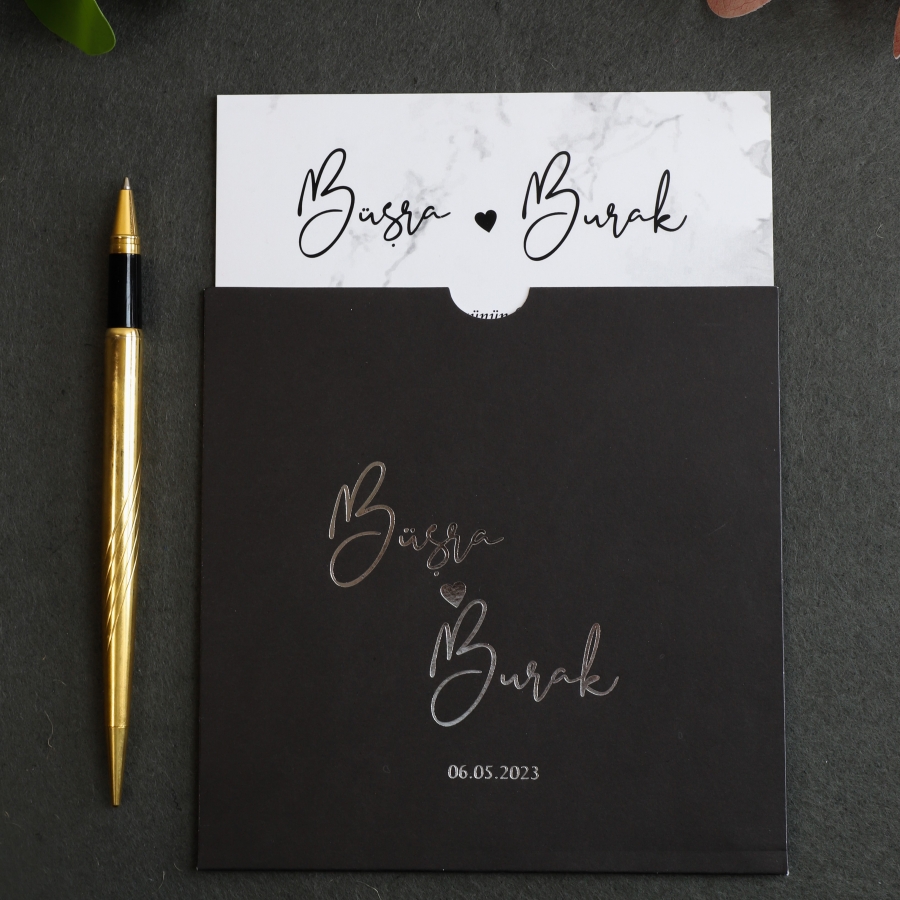 Büşra ♥ Burak
Büşra
♥
Burak
06.05.2023